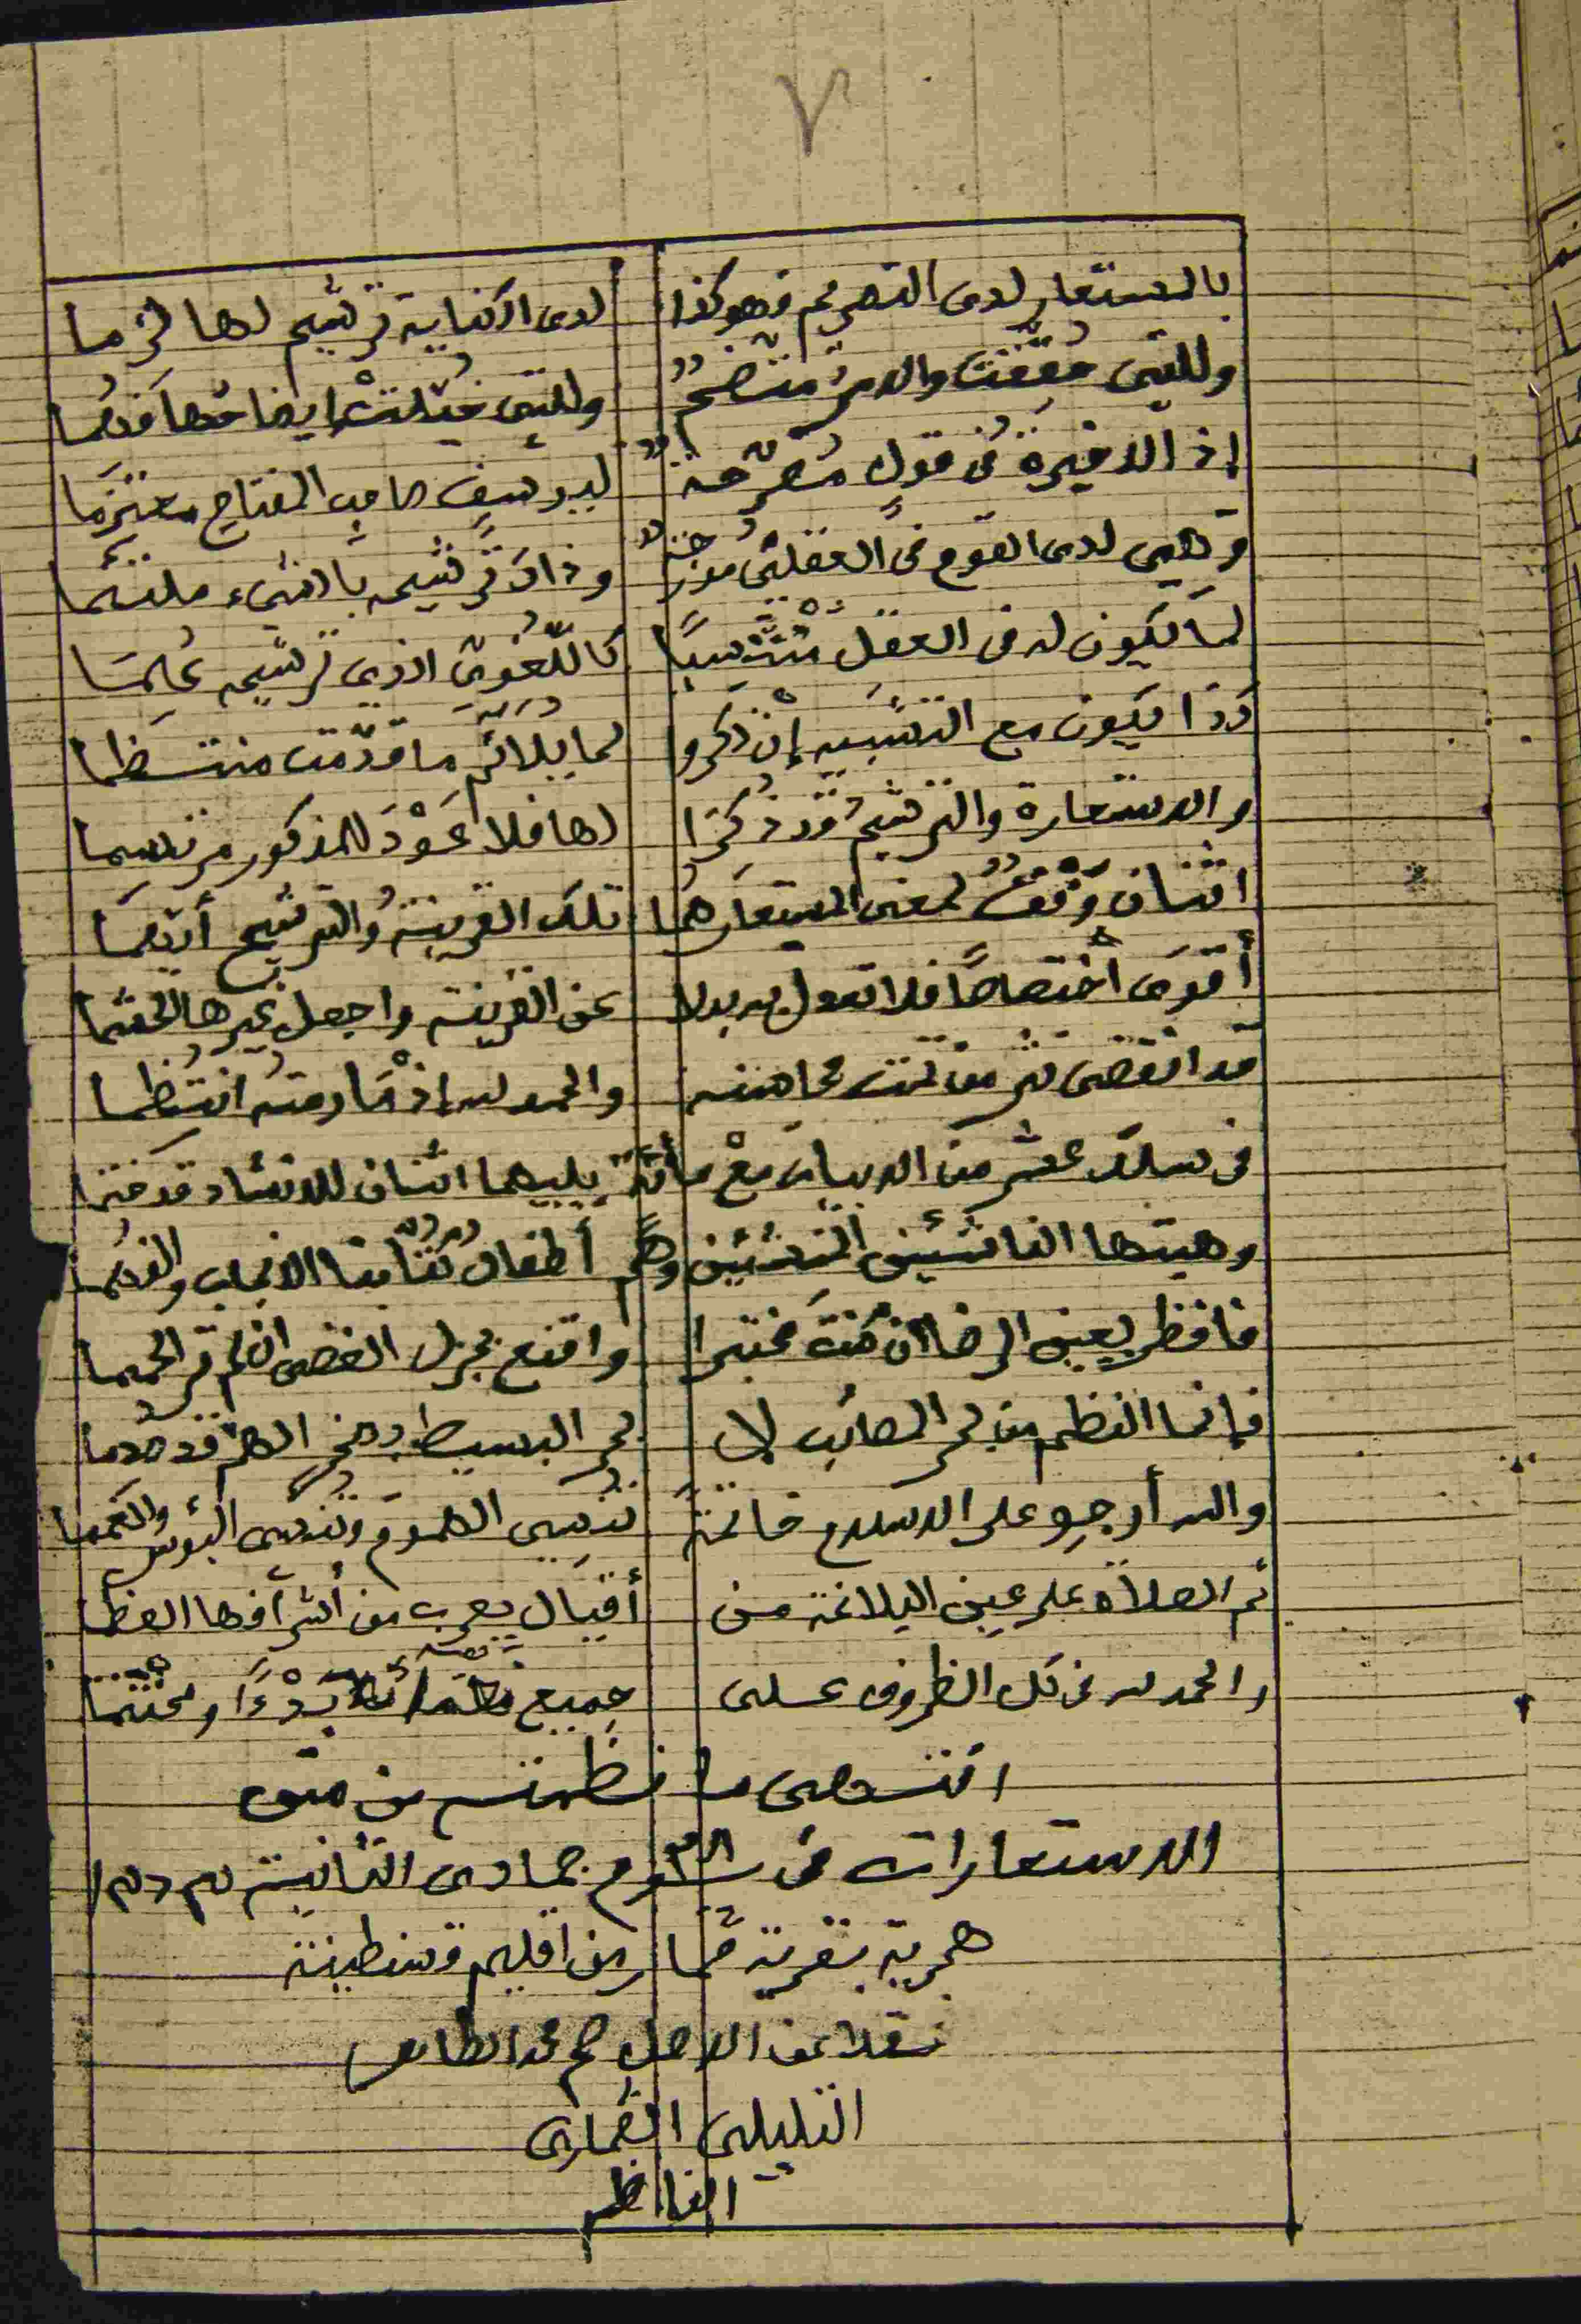 ٧
بالمستعار لدى التصريح وهو كذا لدى الكناية ترشيح لها لزما
وللتي حققت والأمر متضح وللتي خيلت أيضا
إذ الأخيرة في قول مصرحة ليوسف صاحب المفتاح معتزما
وهي لدى القوم في العقلي مدرجة وذاك ترشيحه بالشيء ملتئما
لما يكون له في العقل منتسبا كاللغوي الذي ترشيحه علما
كذا يكون مع التشبيه إن ذكروا لما يلائم ما قدمت منتظما
والاستعارة والترشيح قد ذكرا لها فلا عود للمذكور مرتسما
اثنان وفق لمعنى المستعار هما تلك القرينة والترشيح أيهما
أقوى اختصاصا فلا تعدل به بدلا عن القرينة واجعل غيرها الخدما
قد انقضى نثر من تمت محاسنه والحمد لله إذ ما رمته انتظما
في سلك عشر من الأبيات مع مأة يليهما اثنان للانشاد قد ختما
وهبتها الناشئين المنشئين وهم أطفال كتابنا الانجاب والفهما
فانظر بعين الرضا ان كنت مختبرا واقنع بجزل الغضى ان لم تر الحمما
فإنما النظم من بحر المصائب لا بحر البسيط
والله أرجو على الاسلام خاتمة تنسي الهموم وتنسي البؤس والغمما
ثم الصلاة على عين البلاغة من أقيال يعرب من أشرافها العظما
والحمد لله في كل الظروف على جميع بدءا ومختتما
انتهى ما نظمته من متن
الاستعارات في جمادى الثانية
هجرية بقرية قمار من اقليم قسنطينة
نقلا عن الاصل محمد الطاهر
التليلي القماري
الناظم